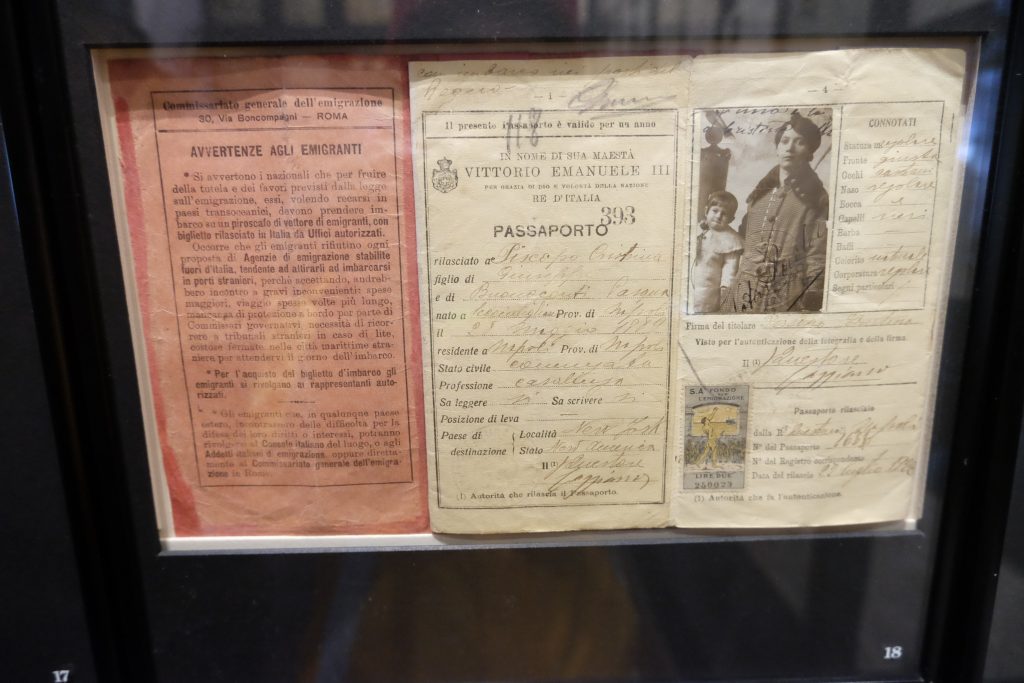 Commissariato generale dell'emigrazione
30, Via Boncompagni — ROMA
AVVERTENZE AGLI EMIGRANTI
* Si avvertono i nazionali che per fruire
della tutela e dei favori previsti dalla legge
sull'emigrazione, essi, volendo recarsi in
paesi transoceanici, devono prendere im-
barco su un piroscafo di vettore di emigranti, con
biglietto rilasciato in Italia da Uffici autorizzati.
Occorre che gli emigranti rifiutino ogni
proposta di Agenzie di emigrazione stabilite
fuori d'Italia, tendente ad attirarli ad imbarcarsi
in porti stranieri, perchè accettando, andreb-
bero incontro a gravi inconvenienti: spese
maggiori, viaggio spesso volte più lungo,
mancanza di protezione a bordo per parte di
Commissari governativi, necessità di ricor-
rere a tribunali stranieri in caso di lite,
costose fermate nelle città marittime stra-
niere per attendervi il giorno dell'imbarco.
* Per l'acquisto del biglietto d'imbarco gli
emigranti si rivolgano ai rappresentanti auto-
rizzati.
* Gli emigranti che, in qualunque paese
estero, incontrassero delle difficoltà per la
difesa dei loro diritti o interessi, potranno
rivolgersi al Console italiano del luogo, o agli
Addetti italiani di emigrazione oppure diretta-
mente al Commissariato generale dell'emigra-
zione in Roma.
— 1 —
118
Il presente Passaporto è valido per un anno
IN NOME DI SUA MAESTÀ
VITTORIO EMANUELE III
PER GRAZIA DI DIO E VOLONTÀ DELLA NAZIONE
RE D'ITALIA
393
PASSAPORTO
rilasciato a Piscopo Cristina
figlio di
e di
nato a Prov. di Napoli
il
residente a Napoli Prov. di Napoli
Stato civile coniugata
Professione casalinga
Sa leggere si Sa scrivere si
Posizione di leva —
Paese di destinazione Località New York
Stato Nord America
Il (1) Questore
(1) Autorità che rilascia il Passaporto.
— 4 —
CONNOTATI
Statura regolare
Fronte giusta
Occhi castani
Naso regolare
Bocca
Capelli neri
Barba
Baffi
Colorito naturale
Corporatura regolare
Segni particolari
Firma del titolare
Visto per l'autenticazione della fotografia e della firma.
Il (1) Questore
S.A. FONDO
PER L'EMIGRAZIONE
LIRE DUE
250023
Passaporto rilasciato
dalla R.
N° del Passaporto
N° del Registro corrispondente
Data del rilascio
(1) Autorità che fa l'autenticazione.
17
18